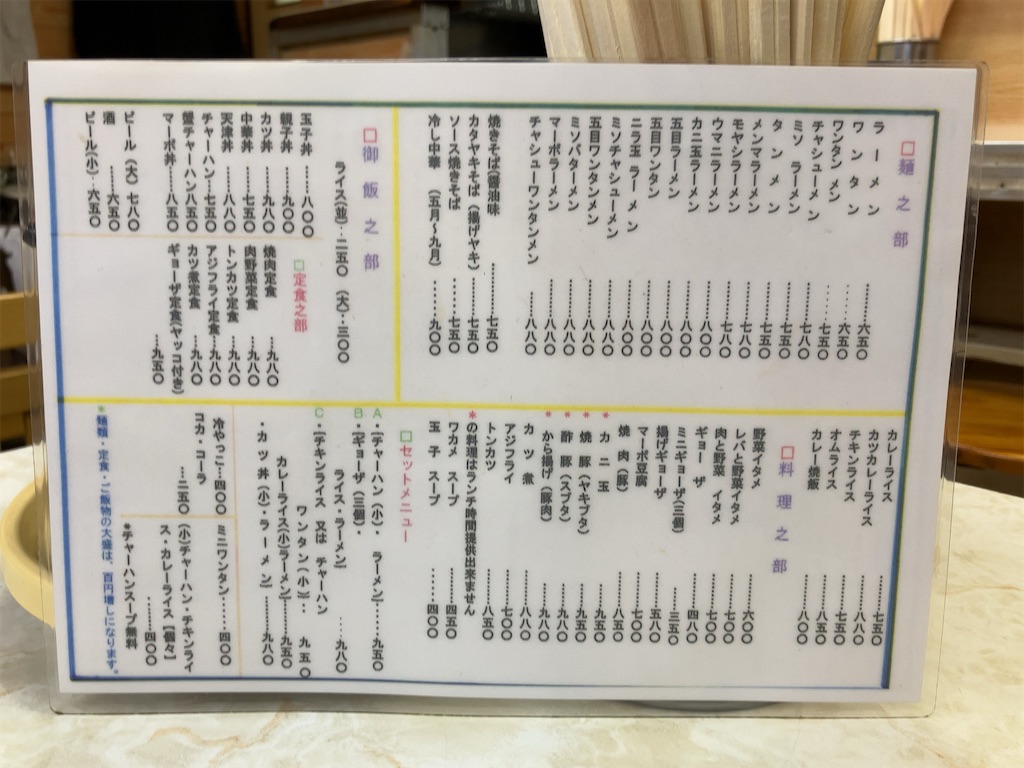 □麺之部
ラーメン ……六五〇
ワンタン ……六五〇
ワンタンメン ……七五〇
チャシューメン ……八八〇
ミソラーメン ……七五〇
タンメン ……七五〇
メンマラーメン ……七八〇
モヤシラーメン ……七八〇
ウマニラーメン ……八〇〇
カニ玉ラーメン ……八〇〇
五目ラーメン ……八〇〇
五目ワンタン ……八〇〇
ニラ玉ラーメン ……八〇〇
ミソチャシューメン ……八八〇
五目ワンタンメン ……八八〇
ミソバターメン ……八八〇
マーボラーメン ……八八〇
チャシューワンタンメン ……八八〇
焼きそば(醤油味 ……七五〇
カタヤキそば(揚げヤキ)……七五〇
ソース焼きそば ……七五〇
冷し中華 (五月〜九月) ……九〇〇
□御飯之部
ライス(並)‥二五〇 (大)‥三〇〇
玉子丼 ……八〇〇
親子丼 ……九〇〇
カツ丼 ……九八〇
中華丼 ……七五〇
天津丼 ……八八〇
チャーハン……七五〇
蟹チャーハン八五〇
マーボ丼……八五〇
ビール(大)七八〇
酒 ……六五〇
ビール(小)‥六五〇
□定食之部
焼肉定食 ……九八〇
肉野菜定食 ……九八〇
トンカツ定食 ……九八〇
アジフライ定食……八八〇
カツ煮定食 ……九八〇
ギョーザ定食(ヤッコ付き)
……九五〇
カレーライス ……七五〇
カツカレーライス ……八八〇
チキンライス ……七五〇
オムライス ……八五〇
カレー焼飯 ……八〇〇
□料理之部
野菜イタメ ……六〇〇
レバと野菜イタメ ……七〇〇
肉と野菜イタメ ……七〇〇
ギョーザ ……四八〇
ミニギョーザ(三個) ……三五〇
揚げギョーザ ……五八〇
マーボ豆腐 ……七〇〇
焼肉(豚) ……八五〇
*カニ玉 ……九五〇
*焼豚(ヤキブタ) ……九八〇
*酢豚(スブタ) ……九八〇
*から揚げ(豚肉) ……九八〇
カツ煮 ……八八〇
アジフライ ……七〇〇
トンカツ ……八五〇
*の料理はランチ時間提供出来ません
ワカメスープ ……四五〇
玉子スープ ……四〇〇
□セットメニュー
A・[チャーハン(小)・ラーメン]……九五〇
B・[ギョーザ(三個)・
ライス・ラーメン] ……九八〇
C・[チキンライス 又は チャーハン
ワンタン(小)]‥ 九五〇
カレーライス(小)ラーメン]……九五〇
・カツ丼(小)・ラーメン]……九八〇
冷やっこ…四〇〇
コカ・コーラ
……二五〇
ミニワンタン……四〇〇
(小)チャーハン・チキンライ
ス・カレーライス[個々]
……四〇〇
*チャーハンスープ無料
*麺類・定食・ご飯物の大盛は、百円増しになります。